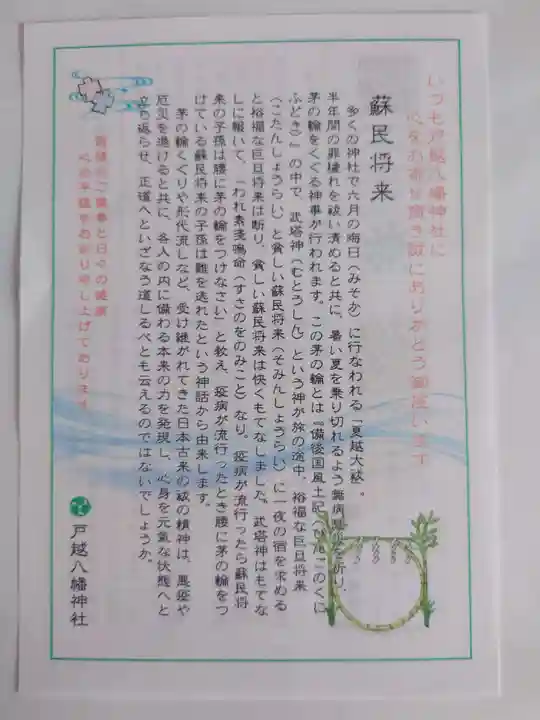 いつも戸越八幡神社に
心をお寄せ頂き誠にありがとう御座います
蘇民将来
多くの神社で六月の晦日(みそか)に行なわれる「夏越大祓」。
半年間の罪穢れを祓い清めると共に、暑い夏を乗り切れるよう無病息災を祈り、
茅の輪をくぐる神事が行われます。この茅の輪とは『備後国風土記(びんごのくに
ふどき)』の中で、武塔神(むとうしん)という神が旅の途中、裕福な巨旦将来
(こたんしょうらい)と貧しい蘇民将来(そみんしょうらい)に一夜の宿を求める
と裕福な巨旦将来は断り、貧しい蘇民将来は快くもてなしました。武塔神はもてな
しに報いて、「われ素戔嗚命(すさのをのみこと)なり。疫病が流行ったら蘇民将
来の子孫は腰に茅の輪をつけなさい」と教え、疫病が流行ったとき腰に茅の輪をつ
けている蘇民将来の子孫は難を逃れたという神話から由来します。
茅の輪くぐりや形代流しなど、受け継がれてきた日本古来の祓の精神は、悪疫や
厄災を退けると共に、各人の内に備わる本来の力を発現し、心身を元気な状態へと
立ち返らせ、正道へといざなう道しるべとも云えるのではないでしょうか。
皆様のご健勝と日々の健康
心の平穏をお祈り申し上げております
戸越八幡神社